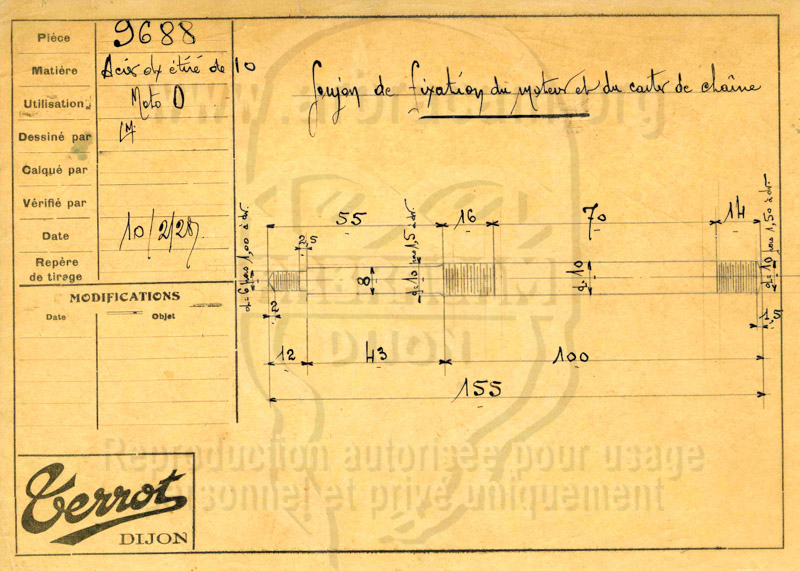 Pièce 9688
Matière Acier dx étiré de 10
Utilisation Moto O
Dessiné par LM
Calqué par
Vérifié par
Date 10/2/28
Repère
de tirage
MODIFICATIONS
Date Objet
Goujon de fixation du moteur et du carter de chaîne
55 16 70 14
2,5
d=6 pas 1,00 à dr.
8
d=10 pas 1,5 à dr.
d=10
d=10 pas 1,50 à dr.
2
1,5
12 43 100
155
DIJON
Reproduction autorisée pour usage
personnel et privé uniquement
Terrot
DIJON